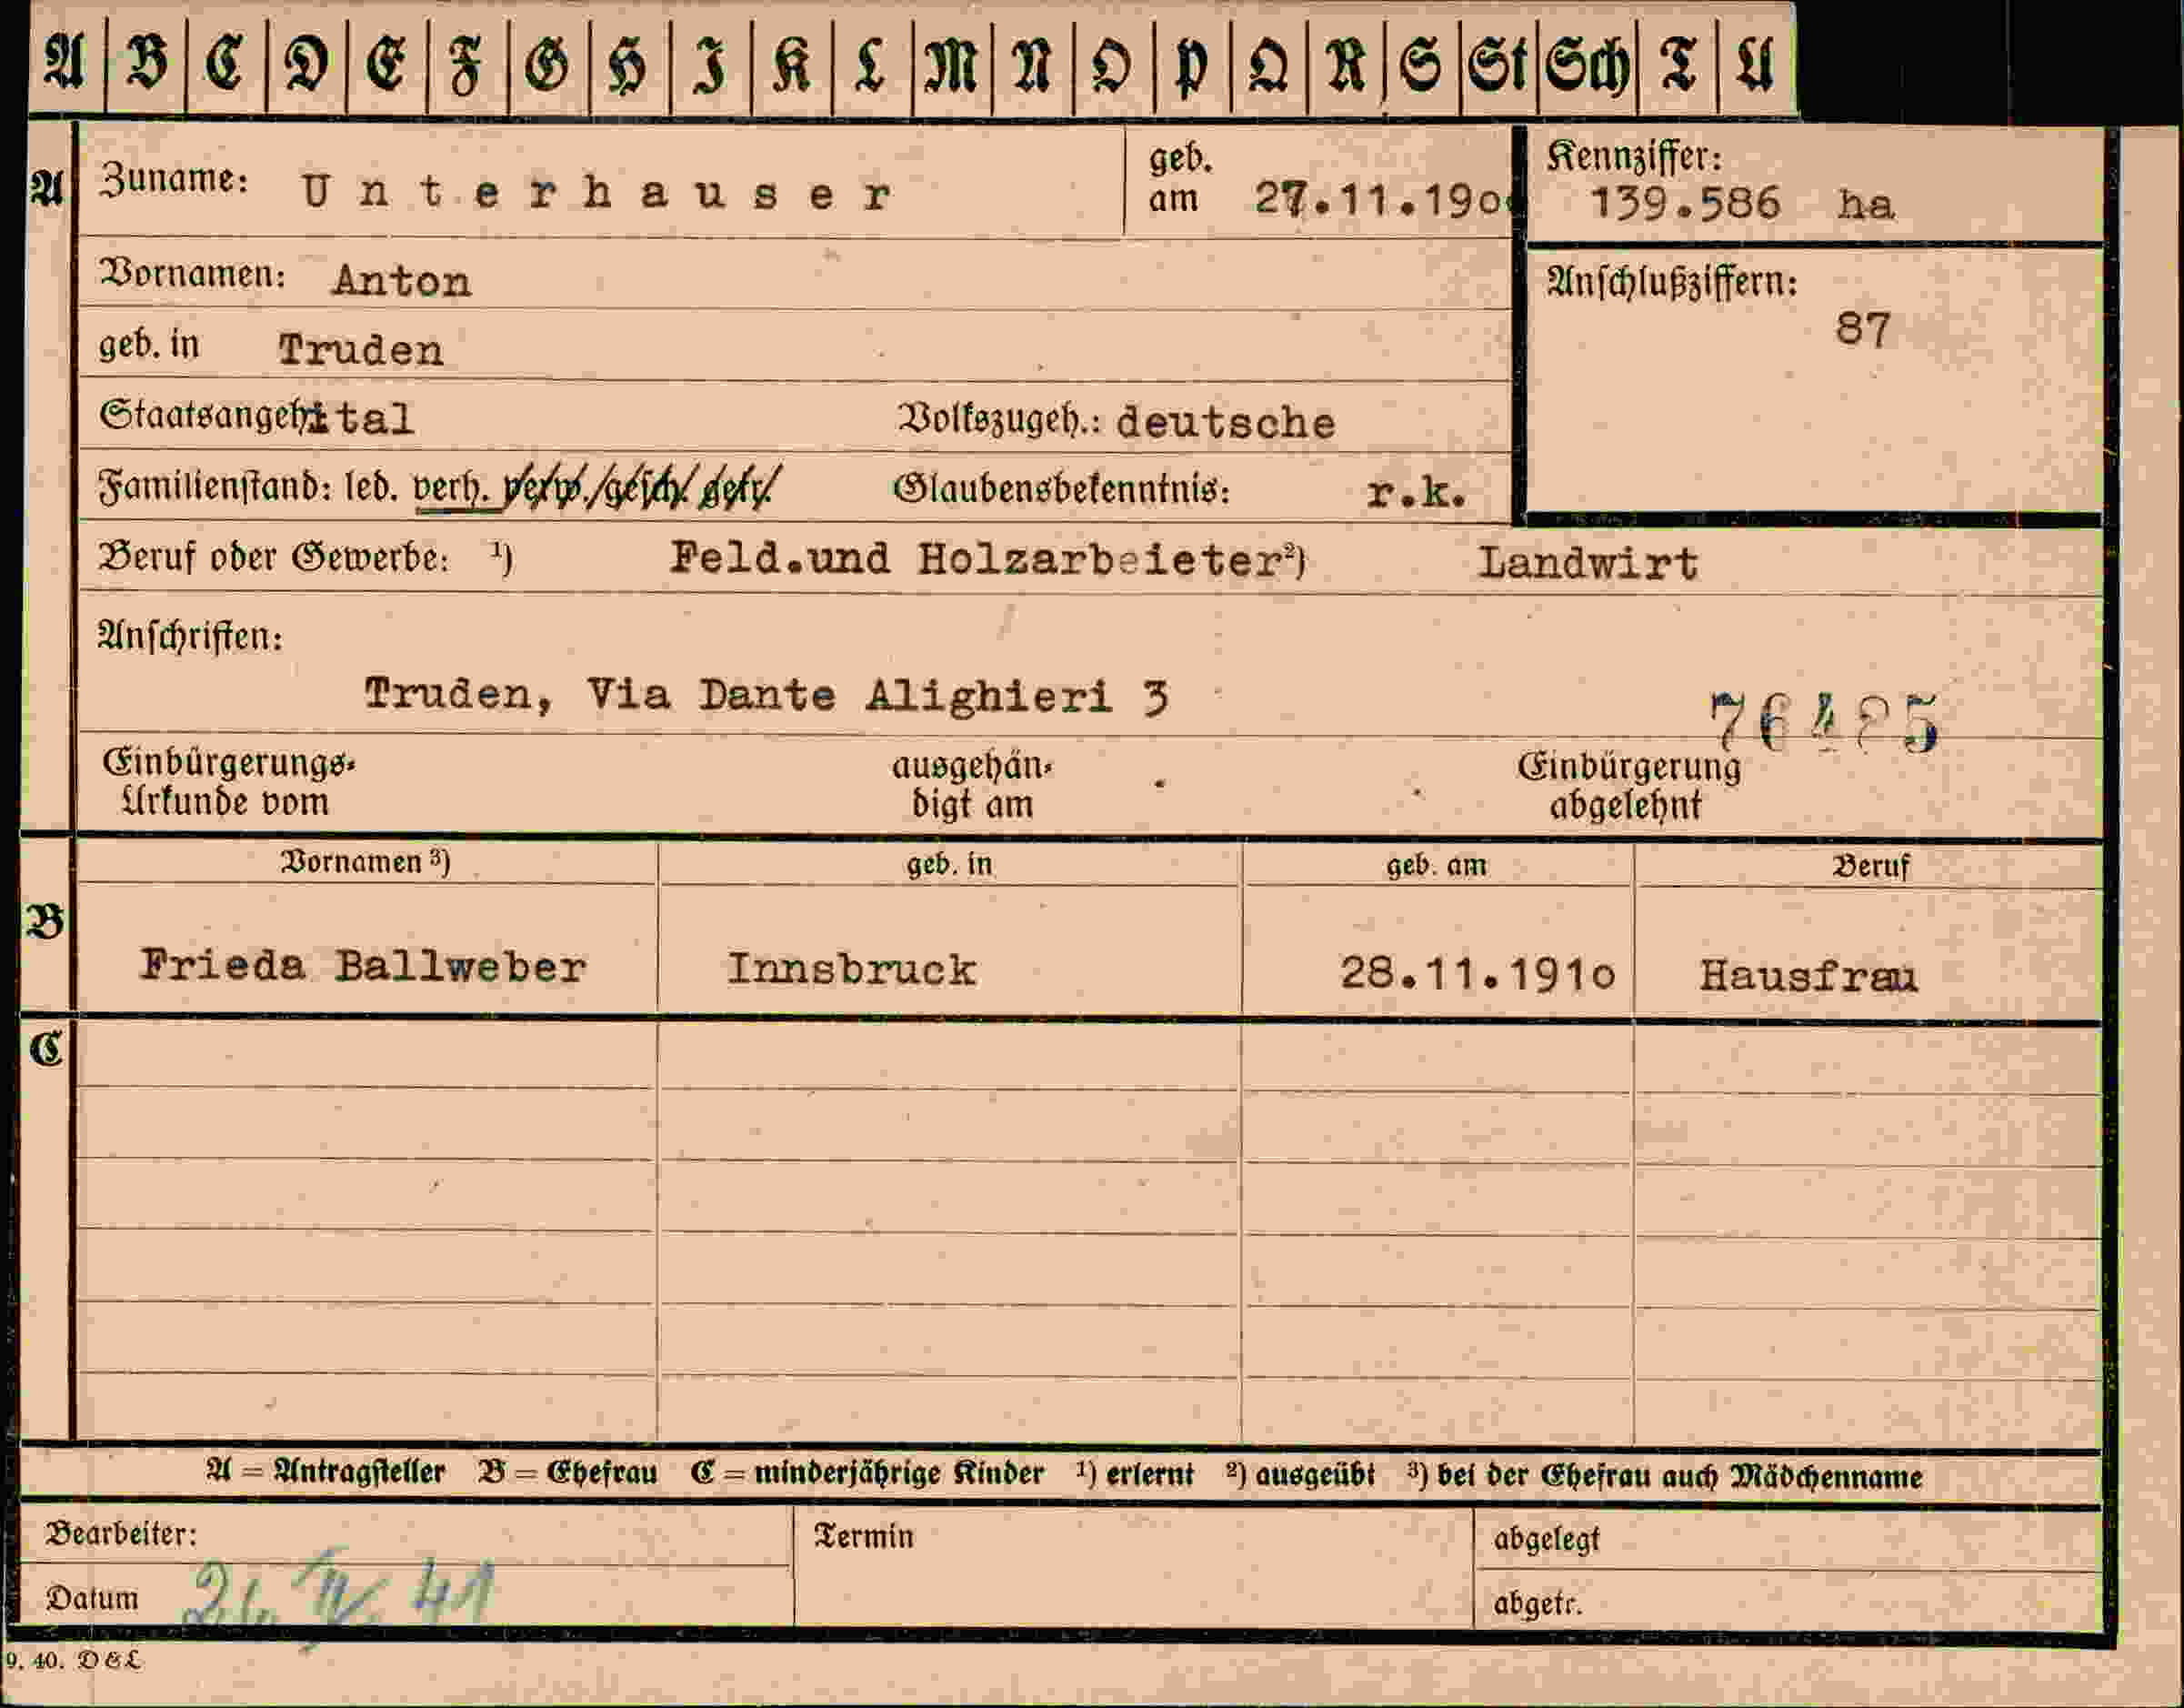 A B C D E F G H I K L M N O P Q R S St Sch T U
A Zuname: Unterhauser geb. am 27.11.190 Kennziffer: 139.586 ha
Vornamen: Anton Anschlußziffern: 87
geb. in Truden
Staatsangeh. ital Volkszugeh.: deutsche
Familienstand: led. verh. verw. gesch. getr. Glaubensbekenntnis: r.k.
Beruf oder Gewerbe: ¹) Feld.und Holzarbeieter ²) Landwirt
Anschriften:
Truden, Via Dante Alighieri 3
76425
Einbürgerungs- ausgehän- Einbürgerung
Urkunde vom digt am abgelehnt
Vornamen ³) geb. in geb. am Beruf
B
Frieda Ballweber Innsbruck 28.11.191o Hausfrau
C
A = Antragsteller B = Ehefrau C = minderjährige Kinder ¹) erlernt ²) ausgeübt ³) bei der Ehefrau auch Mädchenname
Bearbeiter: Termin abgelegt
Datum 41 abgetr.
9. 40. D & L